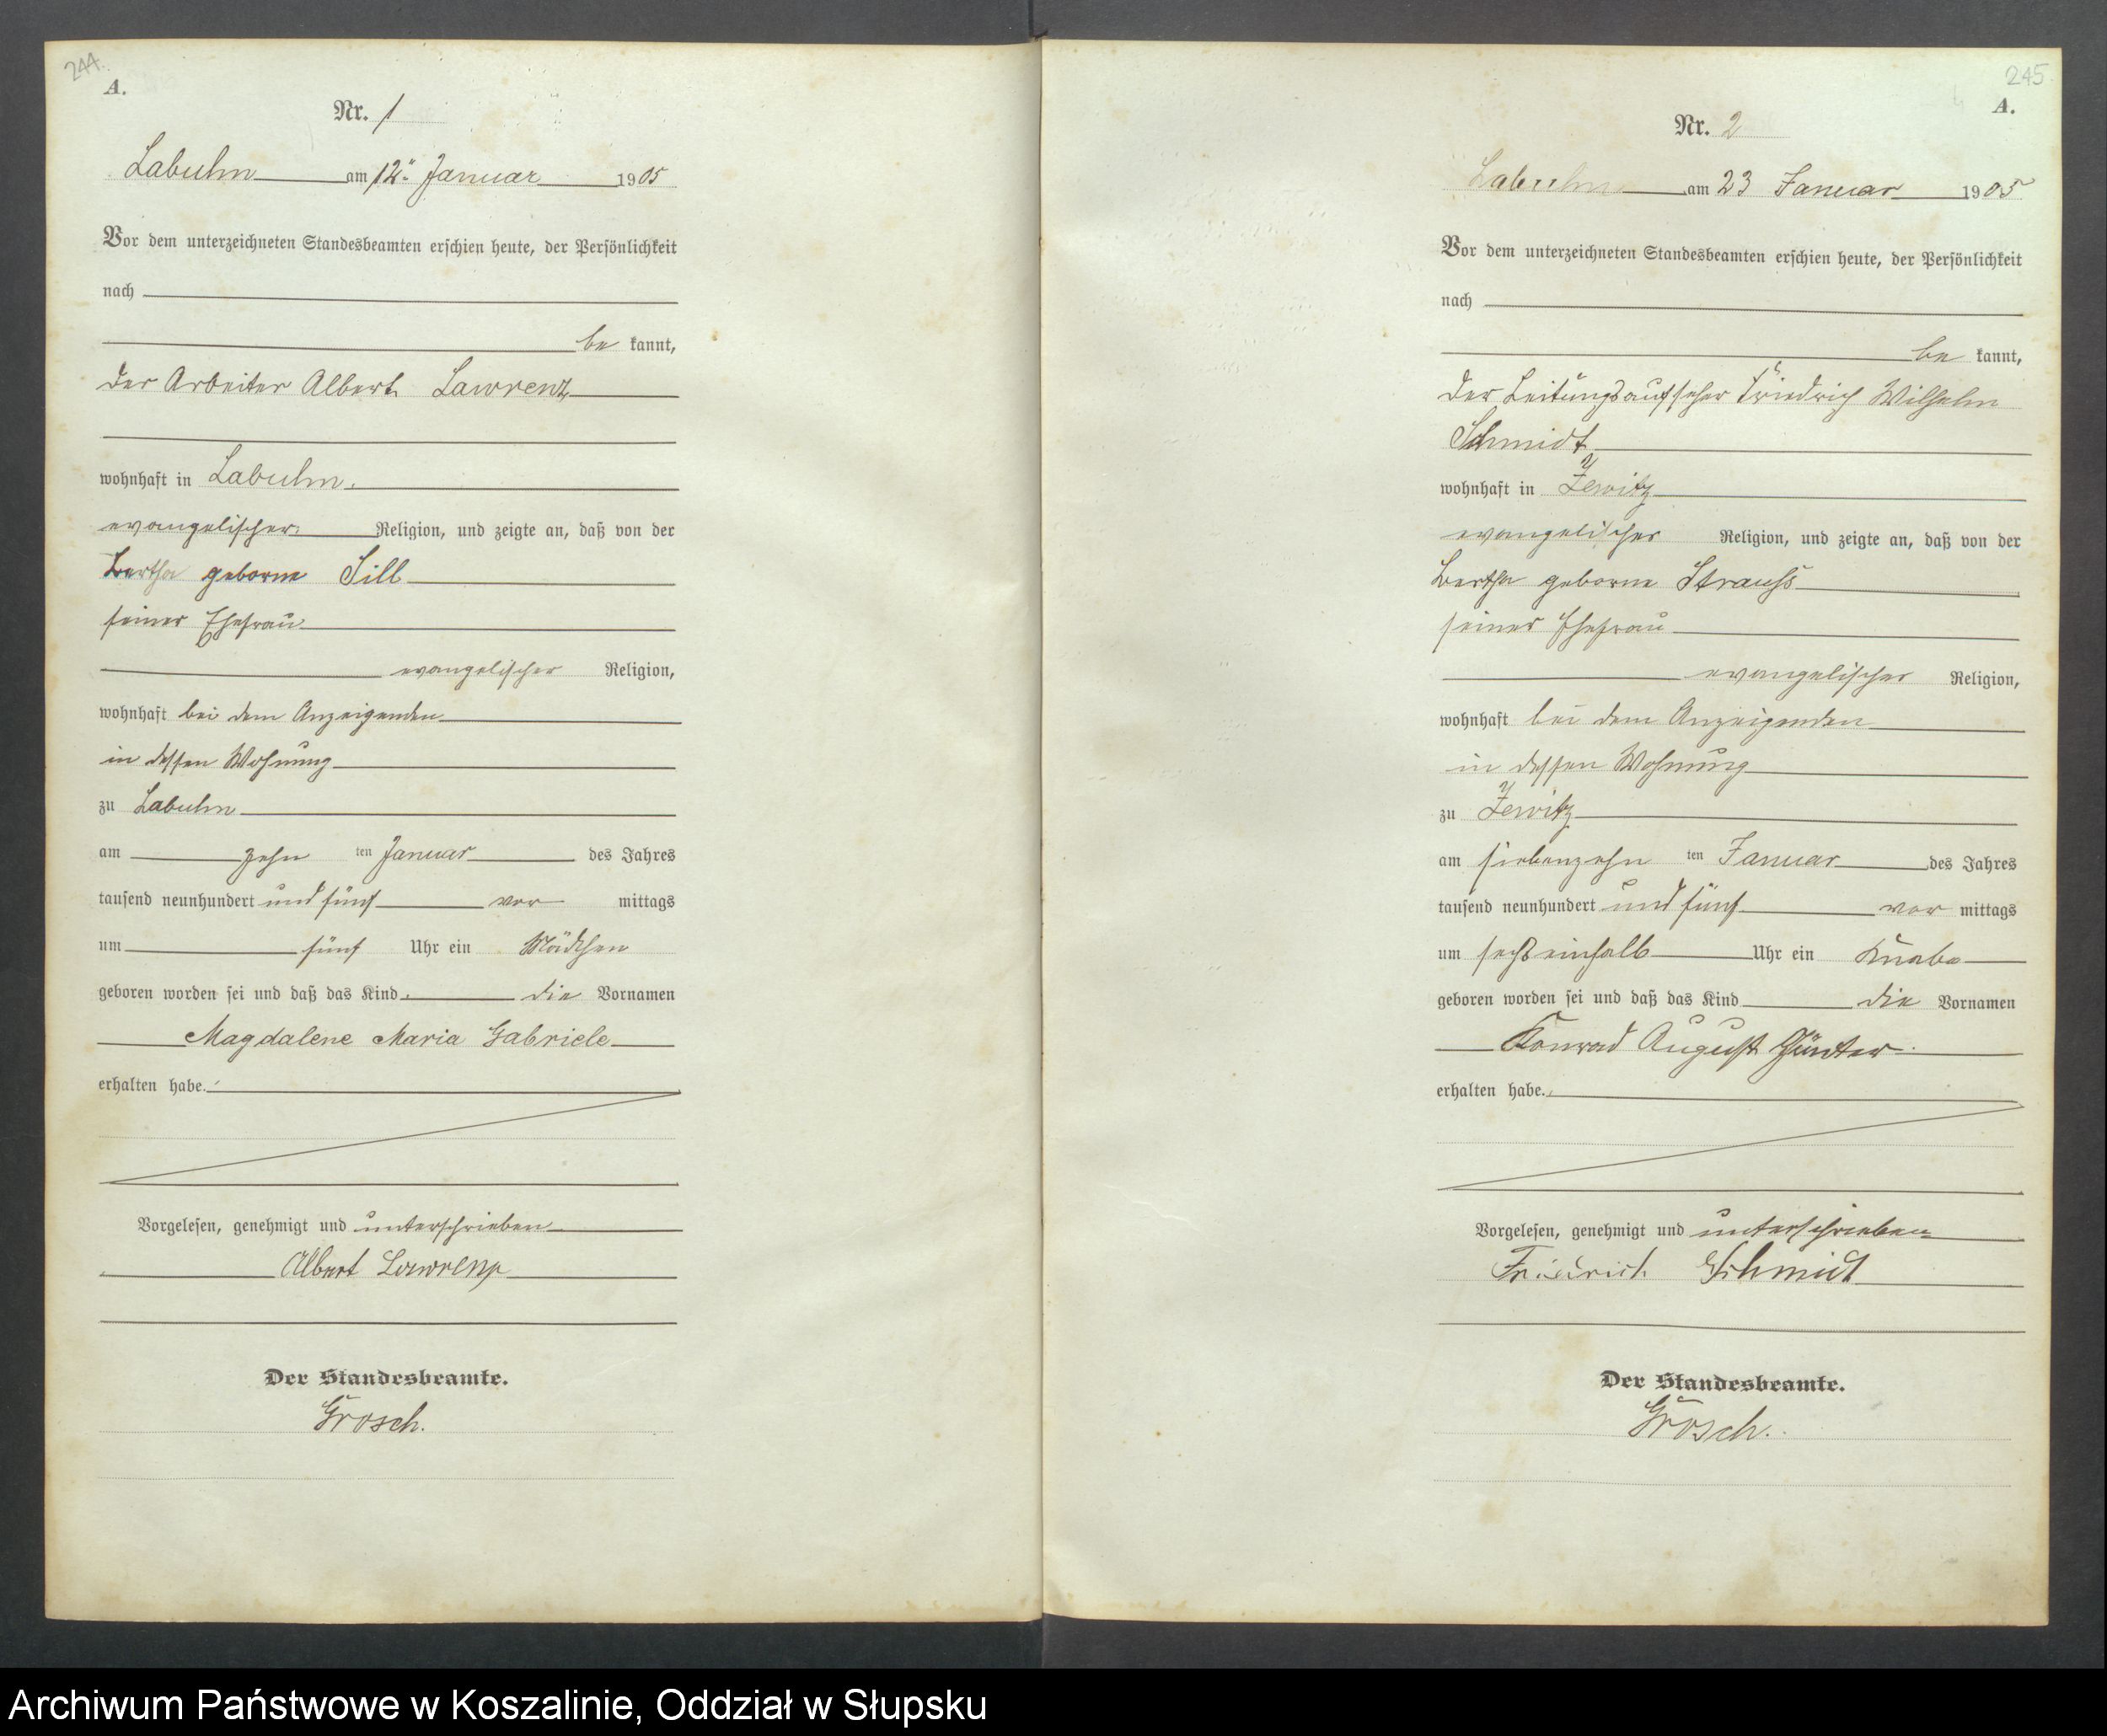 244.
A.
Nr. 1
Labuhn am 12. Januar 1905
Vor dem unterzeichneten Standesbeamten erschien heute, der Persönlichkeit
nach
be kannt,
der Arbeiter Albert Lawrenz
wohnhaft in Labuhn.
evangelischer Religion, und zeigte an, daß von der
Bertha geborne Sill
seiner Ehefrau
evangelischer Religion,
wohnhaft bei dem Anzeigenden
in dessen Wohnung
zu Labuhn
am zehn ten Januar des Jahres
tausend neunhundert und fünf vor mittags
um fünf Uhr ein Mädchen
geboren worden sei und daß das Kind die Vornamen
Magdalene Maria Gabriele
erhalten habe.
Vorgelesen, genehmigt und unterschrieben
Albert Lawrenz
Der Standesbeamte.
Grosch.
245
A.
Nr. 2
Labuhn am 23 Januar 1905
Vor dem unterzeichneten Standesbeamten erschien heute, der Persönlichkeit
nach
be kannt,
der Leitungsaufseher Friedrich Wilhelm
Schmidt
wohnhaft in Zewitz
evangelischer Religion, und zeigte an, daß von der
Bertha geborne Strauss
seiner Ehefrau
evangelischer Religion,
wohnhaft bei dem Anzeigenden
in dessen Wohnung
zu Zewitz
am siebenzehn ten Januar des Jahres
tausend neunhundert und fünf vor mittags
um sechseinhalb Uhr ein Knabe
geboren worden sei und daß das Kind die Vornamen
Konrad August Günter
erhalten habe.
Vorgelesen, genehmigt und unterschrieben
Friedrich Schmidt
Der Standesbeamte.
Grosch.
Archiwum Państwowe w Koszalinie, Oddział w Słupsku